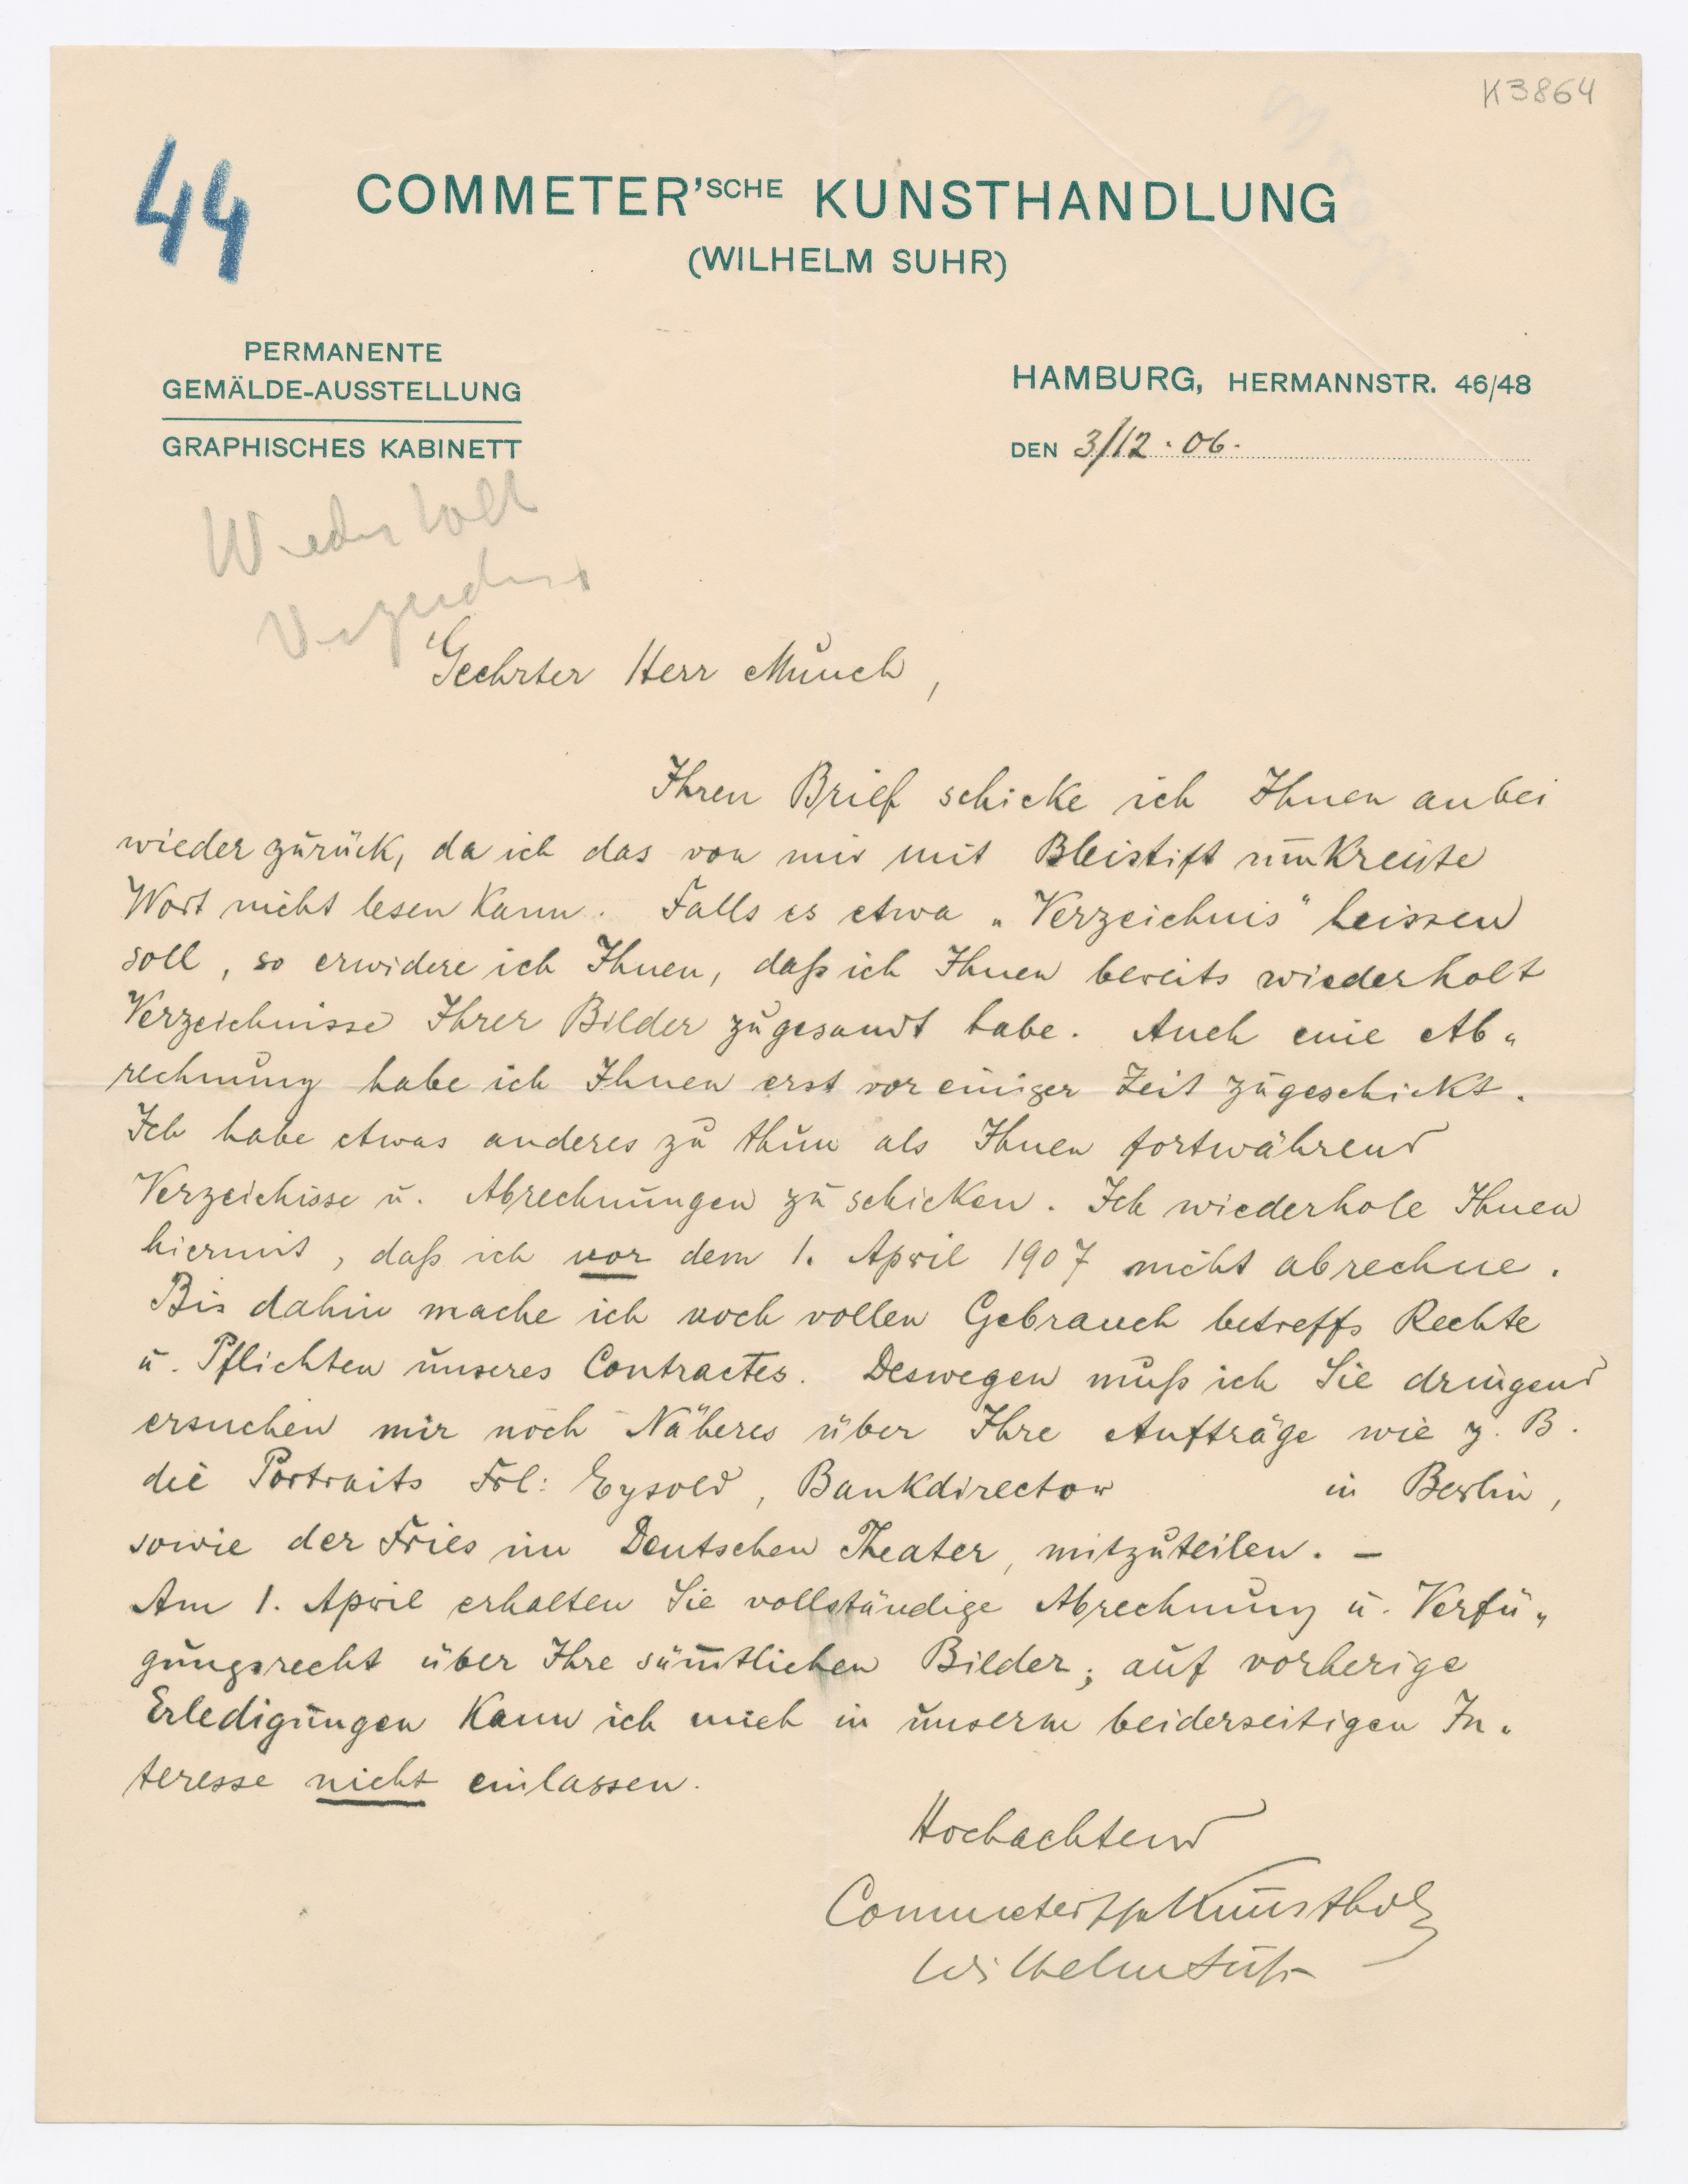 K3864
44
COMMETER'SCHE KUNSTHANDLUNG
(WILHELM SUHR)
PERMANENTE
GEMÄLDE-AUSSTELLUNG
GRAPHISCHES KABINETT
HAMBURG, HERMANNSTR. 46/48
DEN 3/12. 06.
Wiederholt
Geehrter Herr Munch,
Ihren Brief schicke ich Ihnen anbei
wieder zurück, da ich das von mir mit Bleistift umkreiste
Wort nicht lesen kann. Falls es etwa „Verzeichnis" heissen
soll, so erwidere ich Ihnen, daß ich Ihnen bereits wiederholt
Verzeichnisse Ihrer Bilder zugesandt habe. Auch eine Ab„
rechnung habe ich Ihnen erst vor einiger Zeit zugeschickt.
Ich habe etwas anderes zu thun als Ihnen fortwährend
Verzeichisse u. Abrechnungen zu schicken. Ich wiederhole Ihnen
hiermit, daß ich vor dem 1. April 1907 nicht abrechne.
Bis dahin mache ich noch vollen Gebrauch betreffs Rechte
u. Pflichten unseres Contractes. Deswegen muß ich Sie dringend
ersuchen mir noch Näheres über Ihre Aufträge wie z. B.
die Portraits Frl: Eysold, Bankdirector in Berlin,
sowie der Fries im Deutschen Theater, mitzuteilen. –
Am 1. April erhalten Sie vollständige Abrechnung u. Verfü„
gungsrecht über Ihre sämtlichen Bilder; auf vorherige
Erledigungen kann ich mich in unserm beiderseitigen In„
teresse nicht einlassen.
Hochachtend
Commeter'sche Kunsthdlg
Wilhelm Suhr